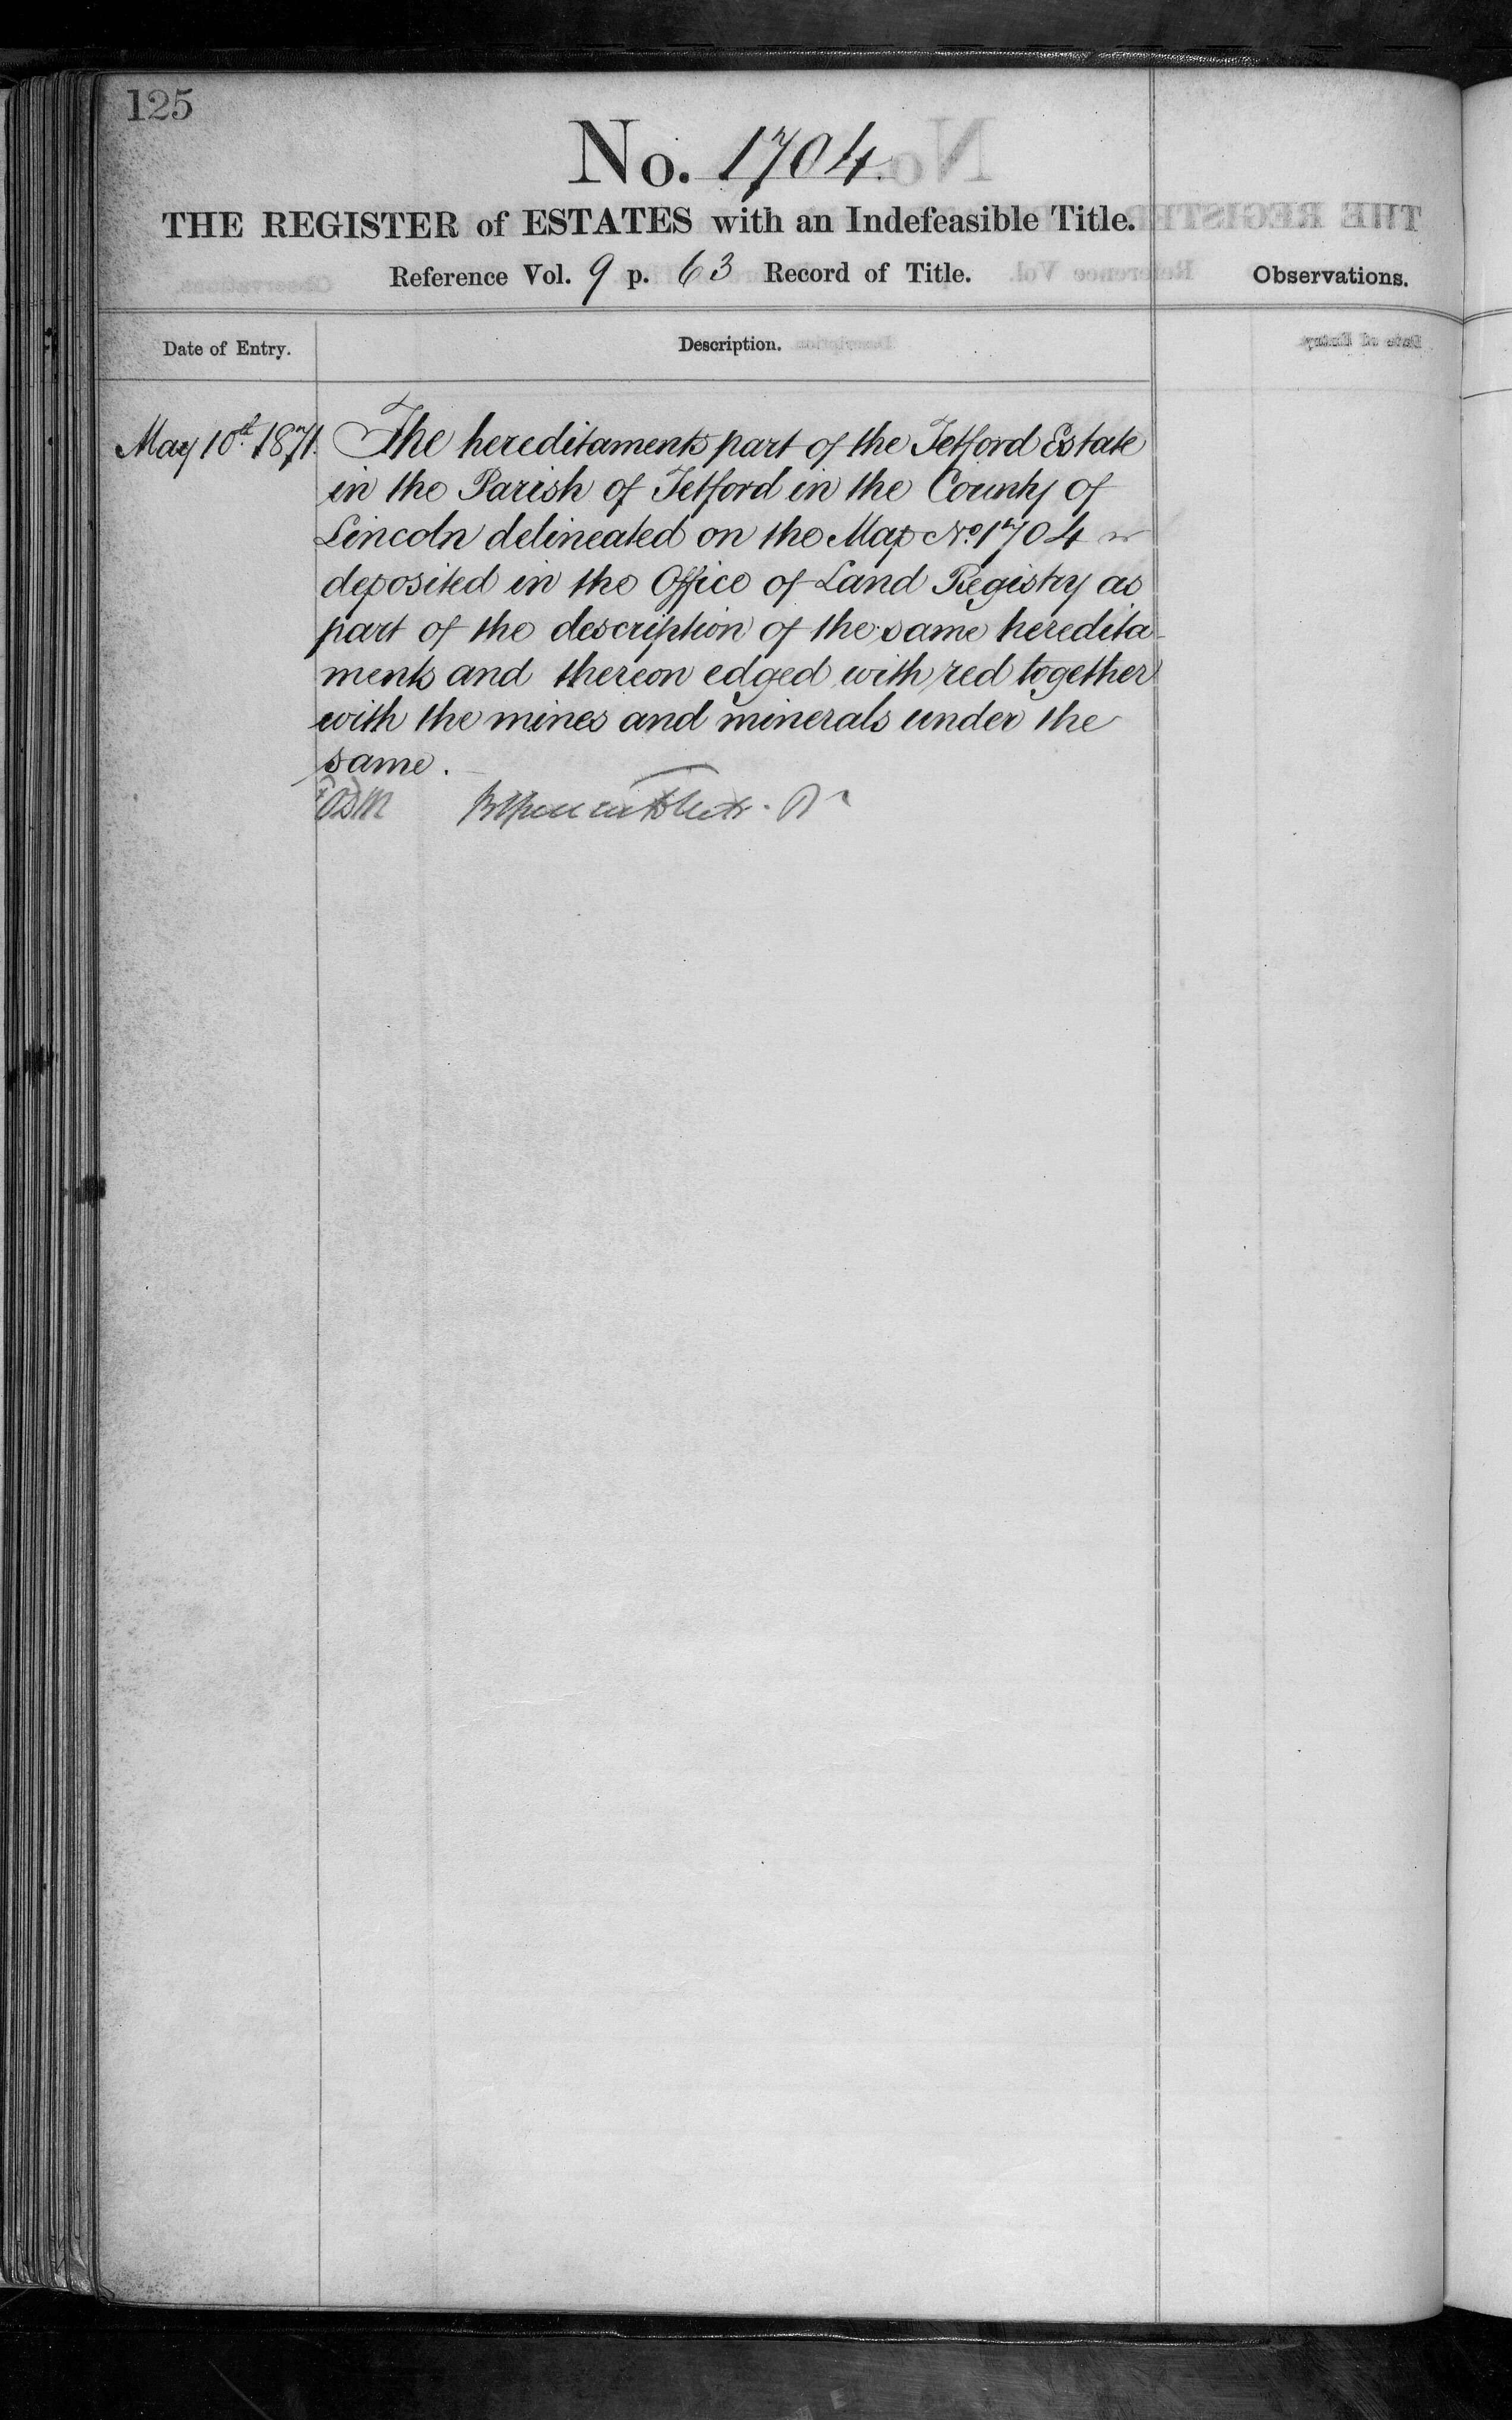 125
No. 1704.
THE REGISTER of ESTATES with an Indefeasible Title.
Reference Vol. 9 p. 63 Record of Title.
Observations.
Date of Entry.
Description.
May 10th. 1871. The hereditaments part of the Tetford Estate
in the Parish of Tetford in the County of
Lincoln delineated on the Map No. 1704
deposited in the Office of Land Registry as
part of the description of the same heredita-
ments and thereon edged with red together
with the mines and minerals under the
same.